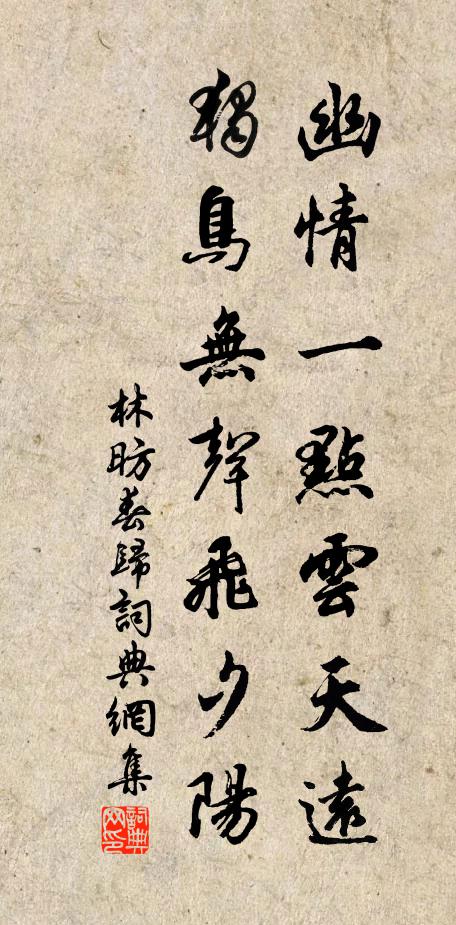 幽情一點雲天遠
獨鳥無聲飛夕陽
林昉春歸詞典網集
詞典網印